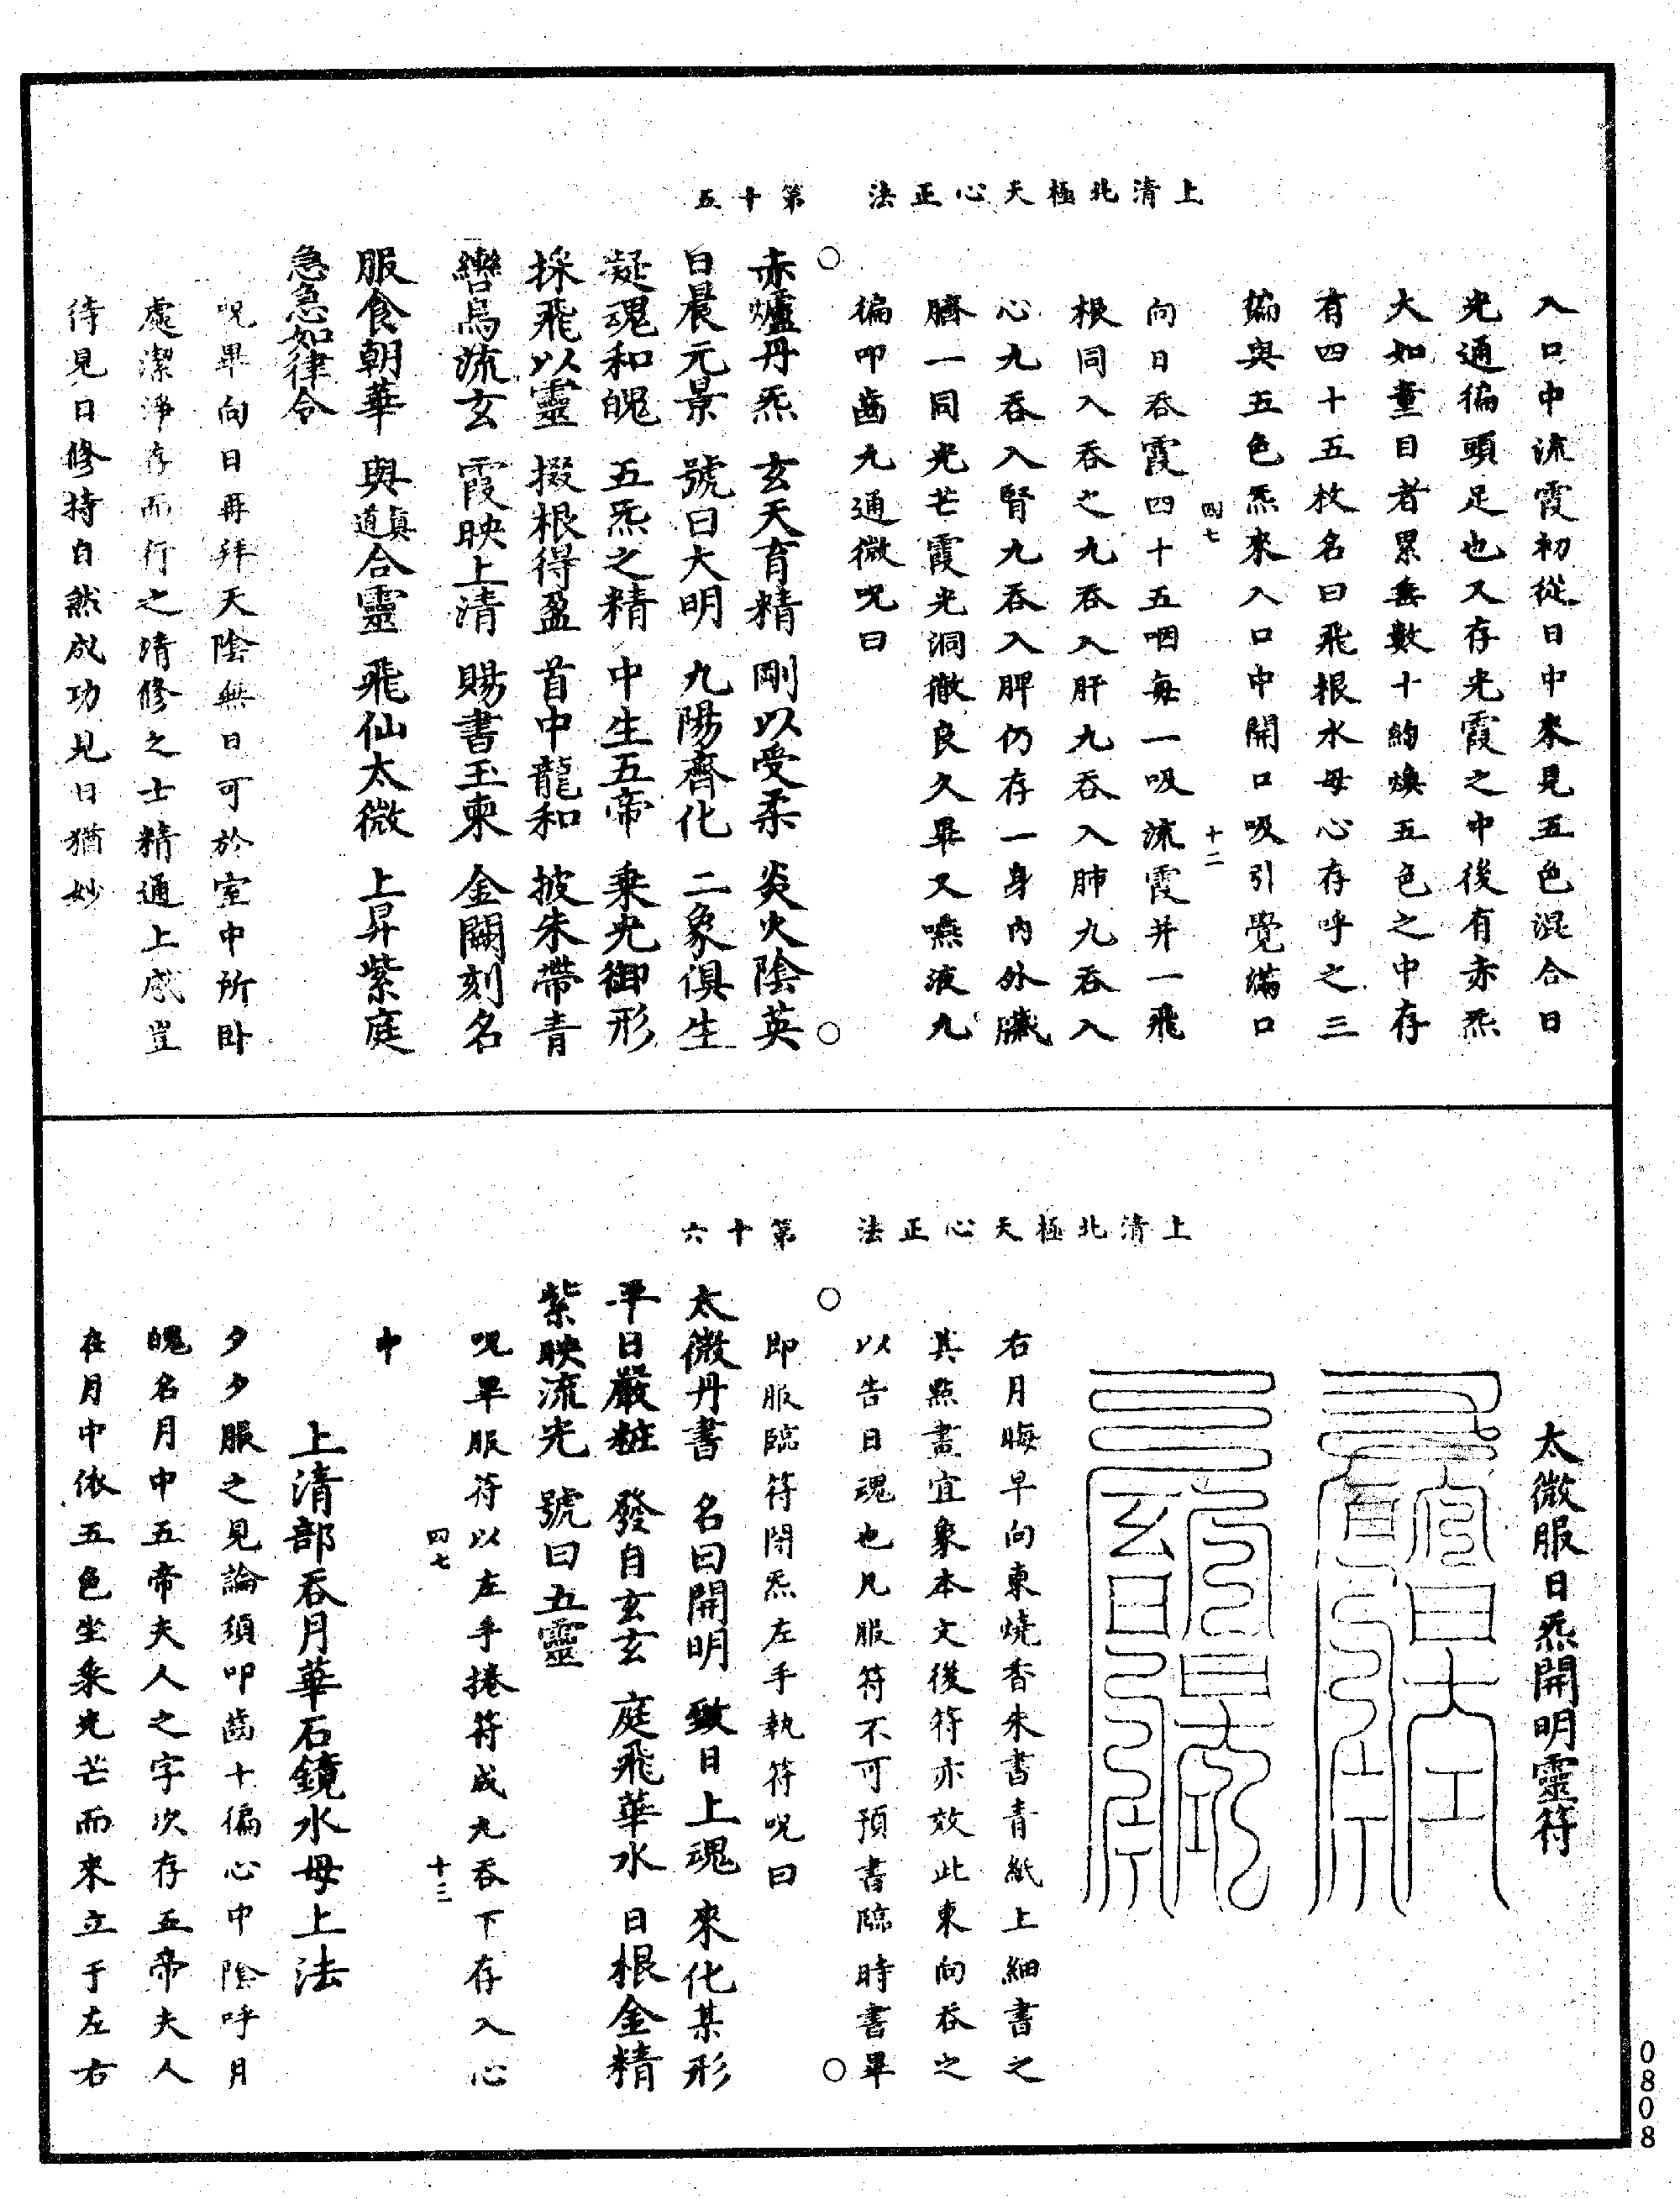 上清北極天心正法　第十五
入口中流霞初從日中來見五色混合日
光通徧頭足也又存光霞之中後有赤炁
大如童目者累無數十約煥五色之中存
有四十五枚名曰飛根水母心存呼之三
徧與五色炁來入口中開口吸引覺滿口
四七　十二
向日吞霞四十五咽每一吸流霞并一飛
根同入吞之九吞入肝九吞入肺九吞入
心九吞入腎九吞入脾仍存一身內外臟
臍一同光芒霞光洞徹良久畢又嚥液九
徧叩齒九通微呪曰
赤爐丹炁　玄天育精　剛以受柔　炎火陰英
日晨元景　號曰大明　九陽齊化　二象俱生
凝魂和魄　五炁之精　中生五帝　乘光御形
採飛以靈　掇根得盈　首巾龍和　披朱帶青
轡烏流玄　霞映上清　賜書玉柬　金闕刻名
服食朝華　與道真合靈　飛仙太微　上昇紫庭
急急如律令
呪畢向日再拜天陰無日可於室中所卧
處潔淨存而行之精修之士精通上感豈
待見日修持自然成功見日猶妙
上清北極天心正法　第十六
太微服日炁開明靈符
右月晦早向東燒香朱書青紙上細書之
其點畫宜象本文後符亦效此東向吞之
以告日魂也凡服符不可預書臨時書畢
即服臨符閉炁左手執符呪曰
太微丹書　名曰開明　致日上魂　來化某形
平日嚴粧　發自玄玄　庭飛華水　日根金精
紫映流光　號曰五靈
呪畢服符以左手捲符成丸吞下存入心
四七　十三
中
上清部吞月華石鏡水母上法
夕夕服之見論須叩齒十徧心中陰呼月
魄名月中五帝夫人之字次存五帝夫人
在月中依五色坐乘光芒而來立于左右
0808